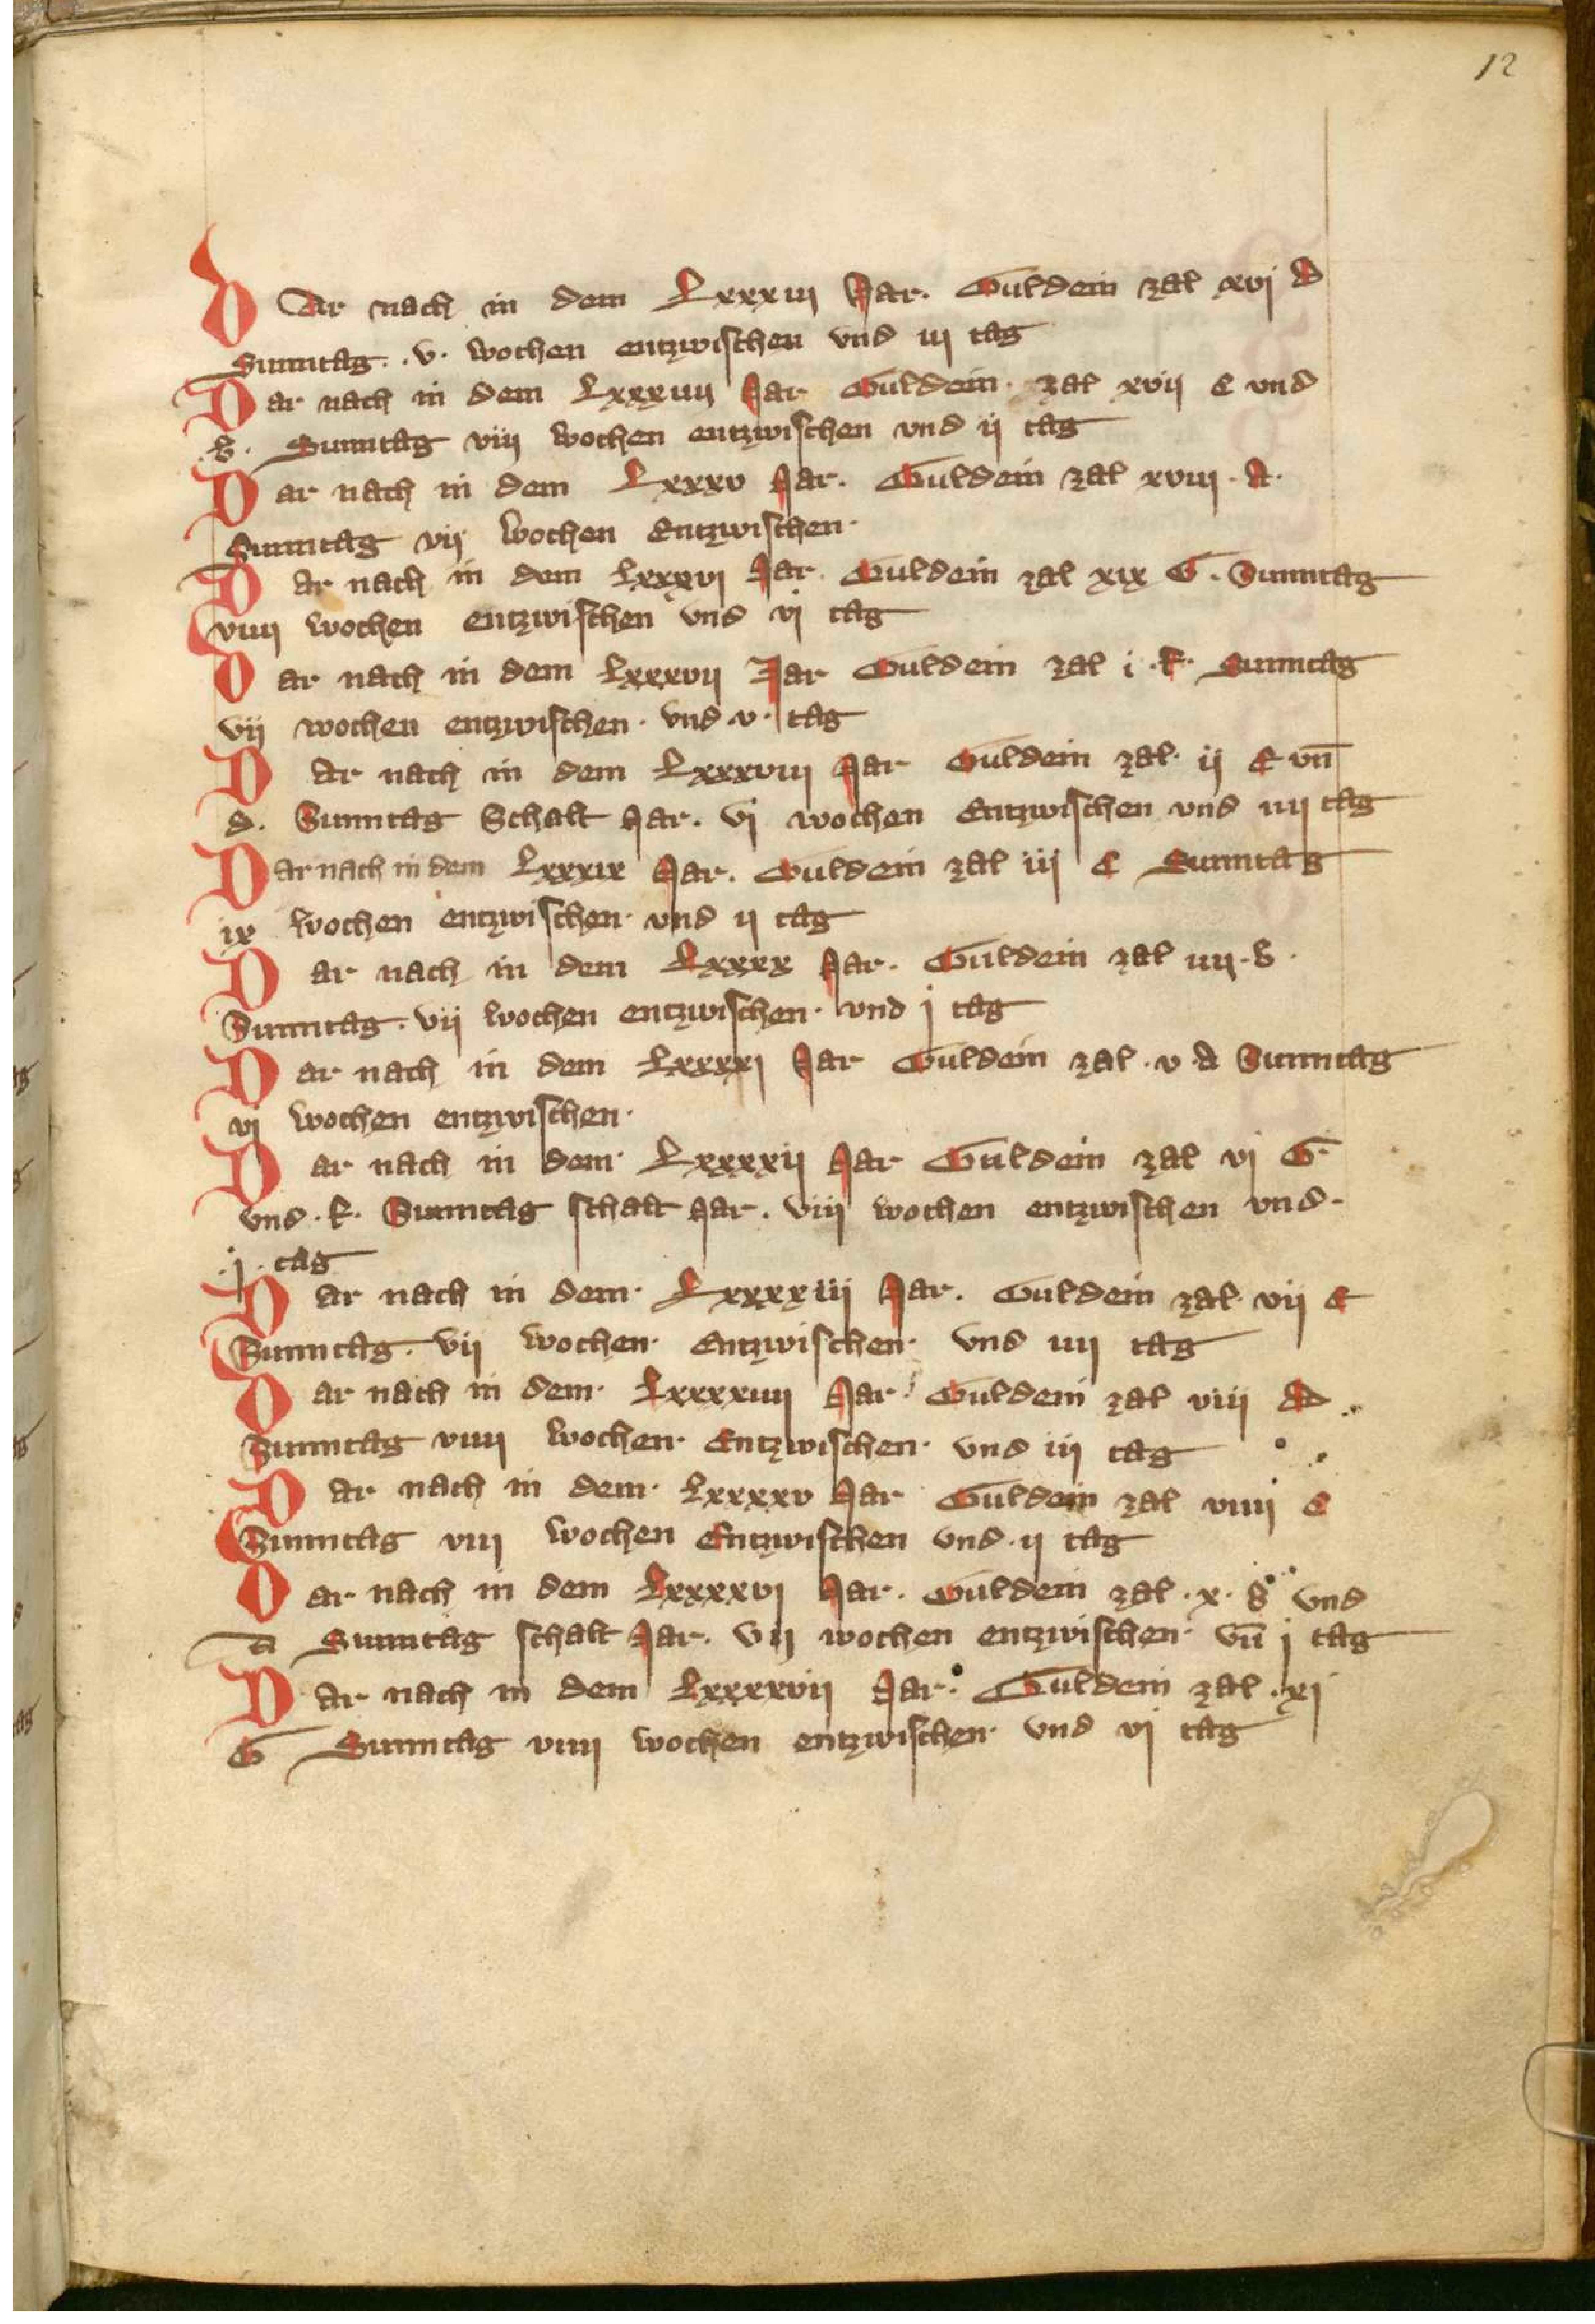 12
DAr nach in dem Lxxxiij Jar. Guldein zal xvj d
Sunntag. .v. wochen entzwischen vnd iij tag
Dar nach in dem Lxxxiiij Jar Guldein. zal xvij c vnd
.b. Sunntag viij wochen entzwischen vnd ij tag
Dar nach in dem Lxxxv Jar. Guldein zal xviij .A.
Sunntag vij wochen Entzwischen.
Dar nach in dem Lxxxvj Jar. Guldein zal xix G. Sunntag
viiij wochen entzwischen vnd vj tag
Dar nach in dem Lxxxvij Jar Guldein zal i .f. Sunntag
vij wochen entzwischen. vnd .v. tag
Dar nach in dem Lxxxviij Jar Guldein zal. ij E vn̄
d. Sunntag Schalt Jar. vj wochen Entzwischen vnd iiij tag
Dar nach in dem Lxxxix Jar. Guldein zal iij C Sunntag
ix wochen entzwischen. vnd ij tag
Dar nach in dem Lxxxx Jar. Guldein zal iiij .b.
Sunntag. vij wochen entzwischen. vnd j tag
Dar nach in dem Lxxxxj Jar Guldein zal .v. A Sunntag
vj wochen entzwischen.
Dar nach in dem. Lxxxxij Jar Guldein zal vj G.
vnd .f. Sunntag schalt Jar. viij wochen entzwischen vnd.
.j. tag
Dar nach in dem. Lxxxxiij Jar. Guldein zal. vij E
Sunntag. vij wochen. Entzwischen. vnd iiij tag
Dar nach in dem. Lxxxxiiij Jar Guldein zal viij d
Sunntag viiij wochen. Entzwischen. vnd iij tag
Dar nach in dem. Lxxxxv Jar Guldein zal viiij C
Sunntag viij wochen Entzwischen vnd. ij tag
Dar nach in dem Lxxxxvj Jar. Guldein zal .x. b vnd
a Sunntag schalt Jar. vij wochen entzwischen. vn̄ j tag
Dar nach in dem Lxxxxvij Jar. Guldein zal .xj
G Sunntag viiij wochen entzwischen. vnd vj tag